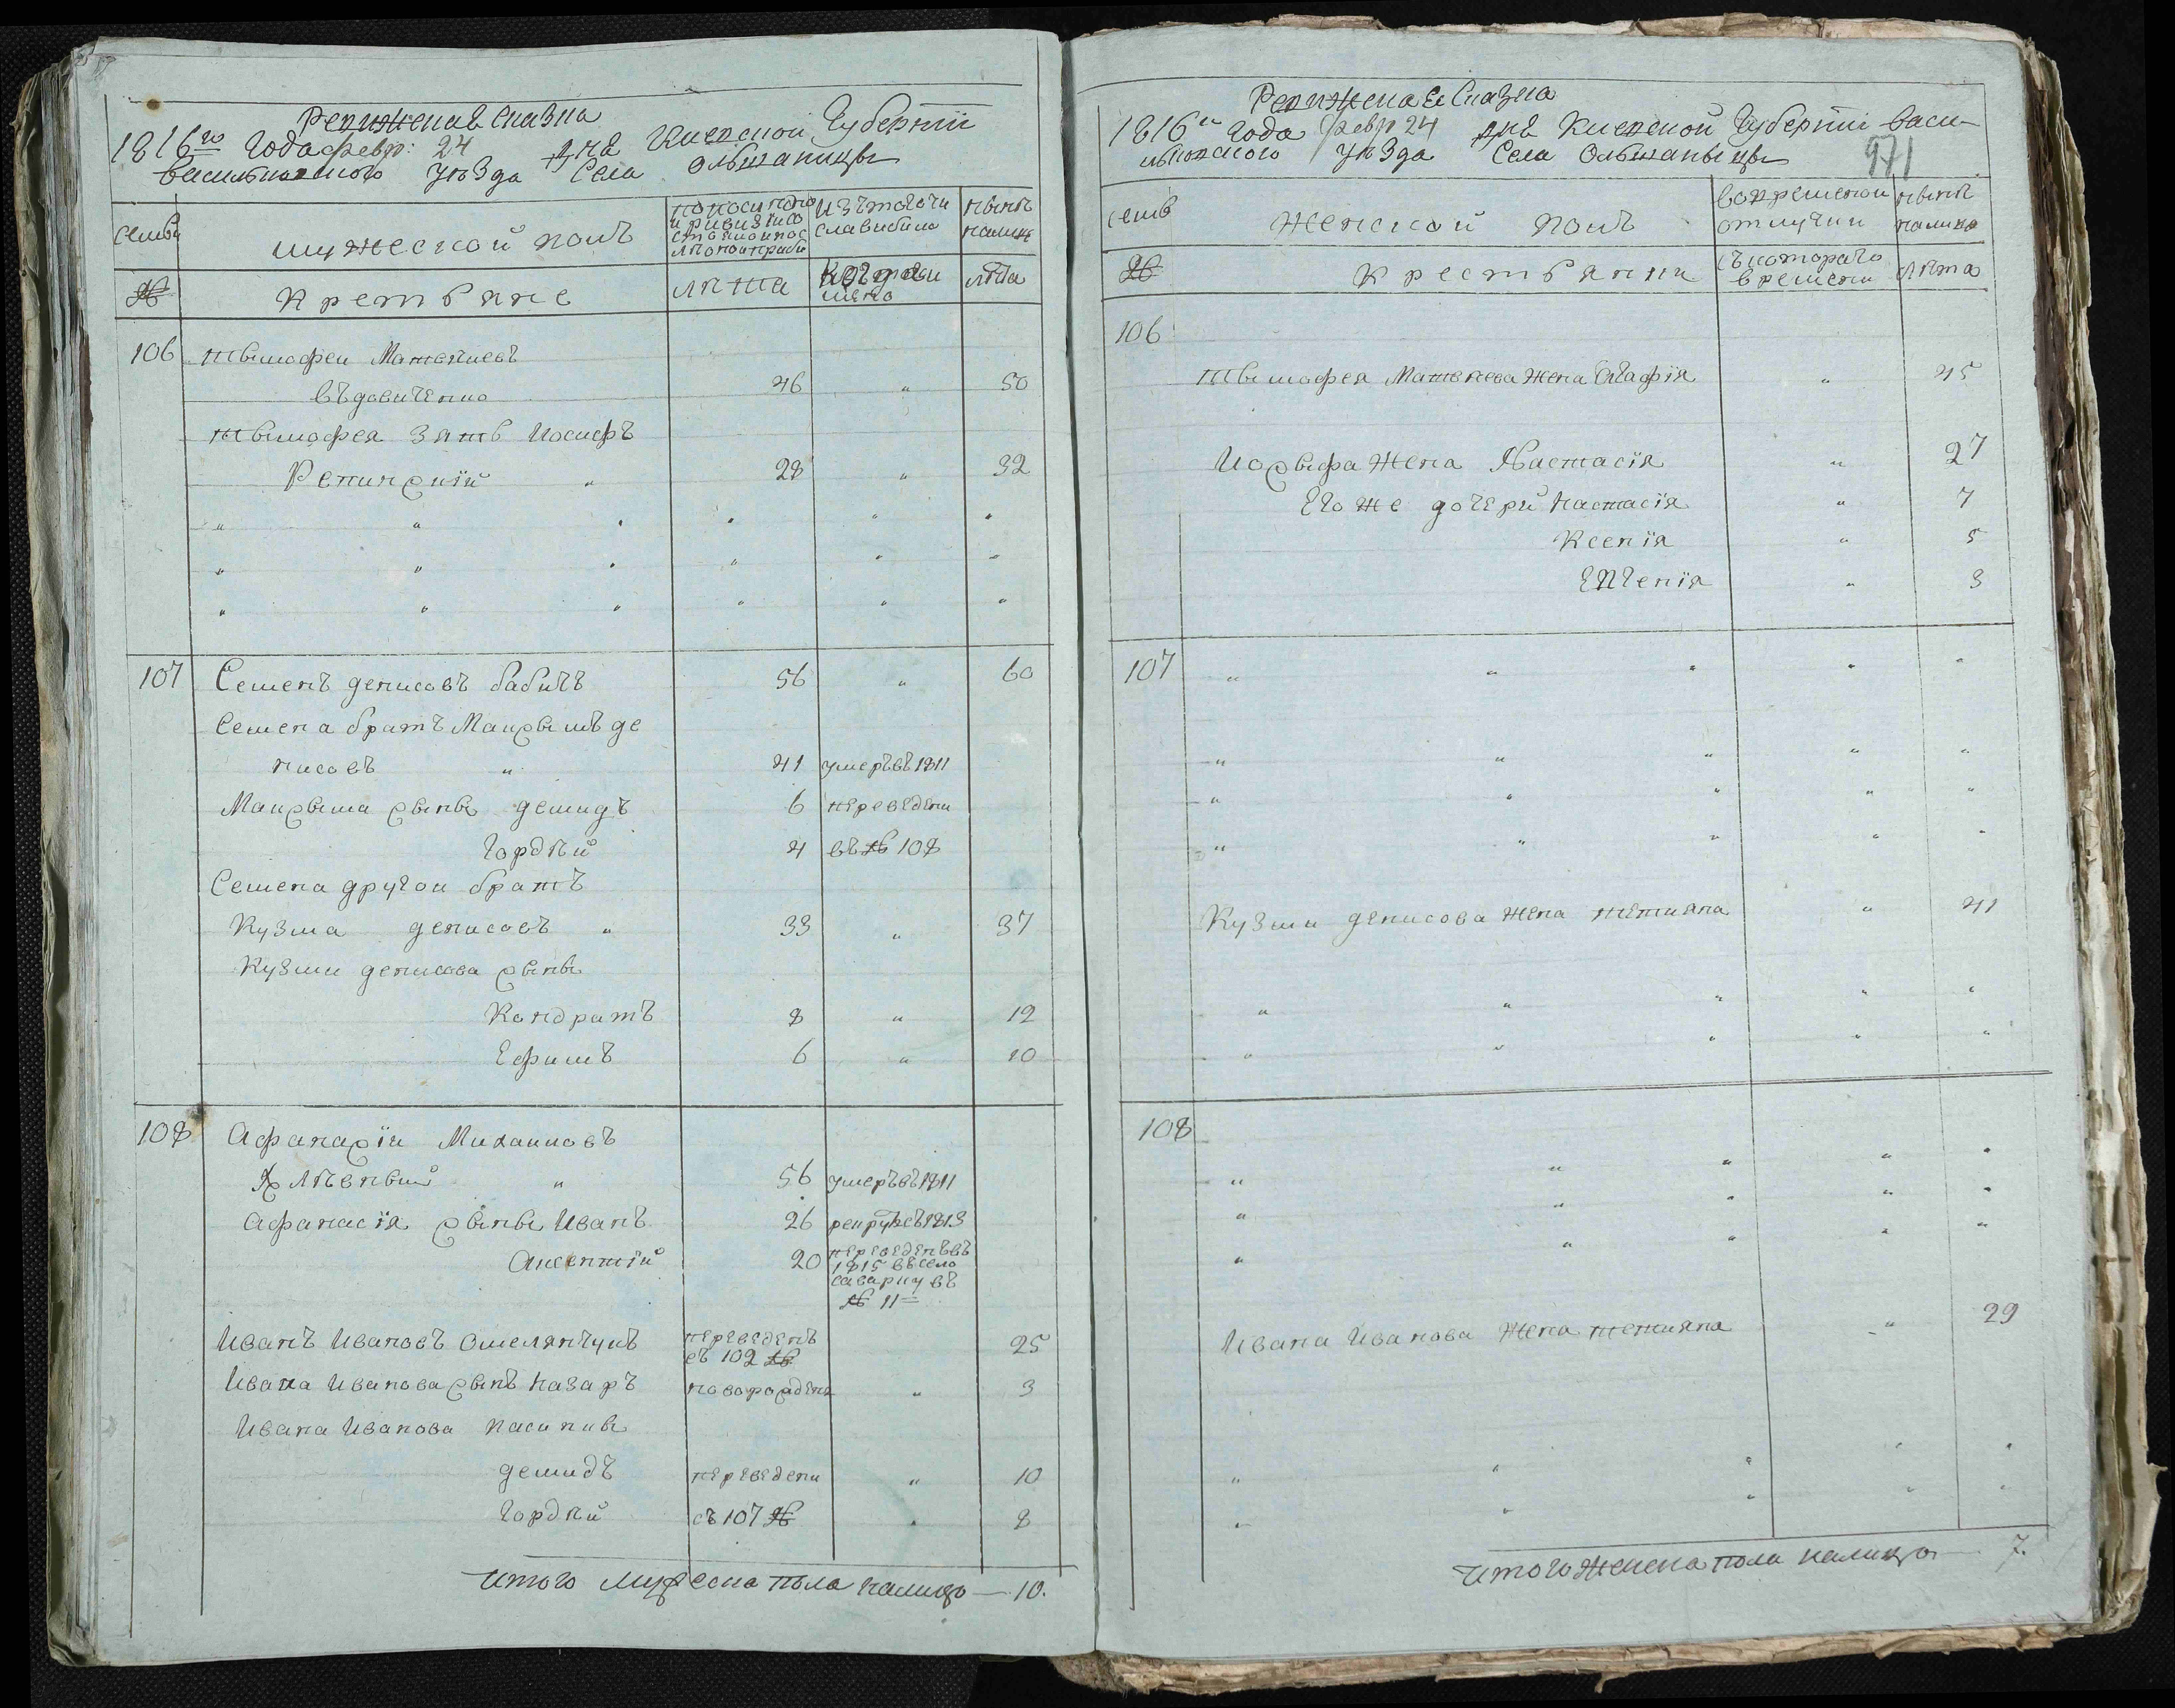 Ревижская Сказка
1816го Года февр: 24 дня Киевской Губернии
васильковского уѣзда Села Ольшаницы
семьи
мужеской полъ
по последней ревизии состояло и после того прибыло
Изъ того числа выбыло
нынѣ налицо
№
Крестьяне
лѣта
Когда имянно
лѣта
106 тымофей Матвѣиевъ
въдовиченко 46 „ 50
тымофея зять Иосифъ
Репинский „ 28 „ 32
„ „ „ „ „ „
„ „ „ „ „ „
„ „ „ „ „ „
107 Семенъ денисовъ бабичъ 56 „ 60
Семена братъ Максымъ де
нисовъ „ 41 умеръ въ 1811
Максыма сыны демидъ 6 переведени
Гордѣй 4 въ № 108
Семена другой братъ
Кузма денисовъ „ 33 „ 37
Кузми денисова сыны
Кондратъ 8 „ 12
Ефимъ 6 „ 10
108 Афанасіи Михаиловъ
Хлѣбный „ 56 умеръ въ 1811
Афанасія сыны Иванъ 26 рекрутъ въ 1813
Аксентій 20 переведенъ въ
1815 въ село
саварку въ
№ 11
Иванъ Ивановъ Омелянчукъ переведенъ 25
съ 102 №
Ивана Иванова сынъ Назаръ новорожденъ „ 3
Ивана Иванова пасинки
демидъ переведени „ 10
Гордѣй съ 107 № „ 8
Итого мужеска пола налицо — 10.
Ревижская Сказка
1816го Года Февр 24 дня Киевской Губернии Васи-
льковского уѣзда Села Ольшаницы
971
семьи
Женской полъ
во временной отлучки
нынѣ налицо
№
Крестьянки
съ которого времени
лѣта
106
тымофея Матвѣева жена Агафія „ 45
Иосыфа жена Настасія „ 27
Его же дочери Настасія „ 7
Ксенія „ 5
Евгенія „ 3
107 „ „ „ „ „
„ „ „ „ „
„ „ „ „ „
„ „ „ „ „
Кузми денисова жена тетияна „ 41
„ „ „ „ „
„ „ „ „ „
108
„ „ „ „ „
„ „ „ „ „
„ „ „ „ „
Ивана Иванова жена тетияна „ 29
„ „ „ „ „
„ „ „ „ „
Итого женска пола налицо — 7.